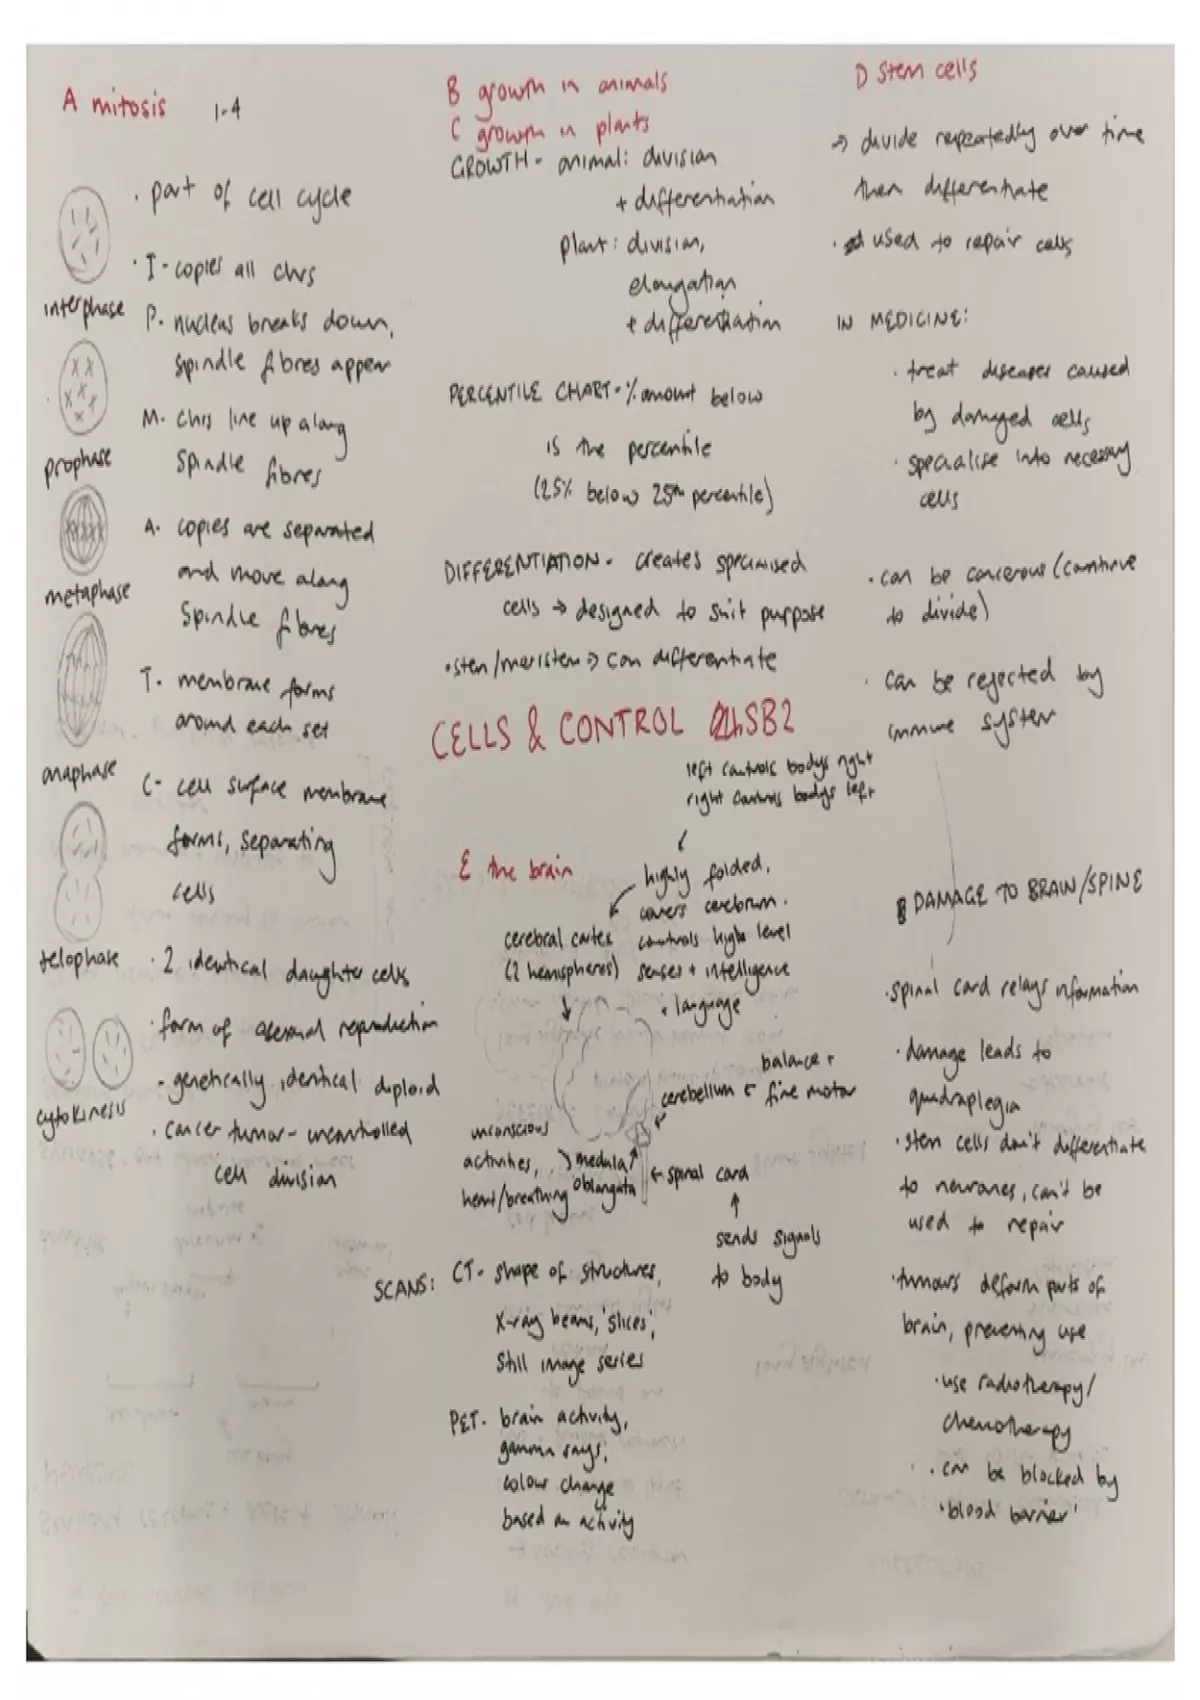 A mitosis 1-4
interphase
prophase
metaphase
anaphase
telophase
cytokinesis
· part of cell cycle
· I - copies all chrs
P. nucleus breaks down,
spindle fibres appear
M. Chrs line up along
Spindle fibres
A. copies are separated
and move along
Spindle fibres
T. membrane forms
around each set
C- cell surface membrane
forms, separating
cells
· 2 identical daughter cells
· form of asexual reproduction
- genetically identical diploid
· Cancer tumor - uncontrolled
cell division
B growth in animals
C growth in plants
GROWTH - animal: division
+ differentiation
plant: division,
elongation
+ differentiation
PERCENTILE CHART - % amount below
is the percentile
(25% below 25th percentile)
DIFFERENTIATION - creates specialised
cells → designed to suit purpose
· stem/meristem → can differentiate
CELLS & CONTROL SB2
left controls bodys right
right controls bodys left
E the brain
highly folded,
covers cerebrum.
controls high level
senses + intelligence
+ language
cerebral cortex
(2 hemispheres)
balance +
fine motor
cerebellum
unconscious
activities,
heart/breathing
medulla
oblongata
← spinal cord
sends signals
to body
SCANS: CT - shape of structures,
X-ray beams, 'slices',
Still image series
PET - brain activity,
gamma rays,
colour change
based on activity
D Stem cells
→ divide repeatedly over time
then differentiate
· used to repair cells
IN MEDICINE:
· treat diseases caused
by damaged cells
· specialise into necessary
cells
· can be cancerous (continue
to divide)
· can be rejected by
immune system
DAMAGE TO BRAIN/SPINE
· spinal cord relays information
· damage leads to
quadraplegia
· stem cells don't differentiate
to neurones, can't be
used to repair
· tumours deform parts of
brain, preventing use
· use radiotherapy/
chemotherapy
· can be blocked by
'blood barrier'